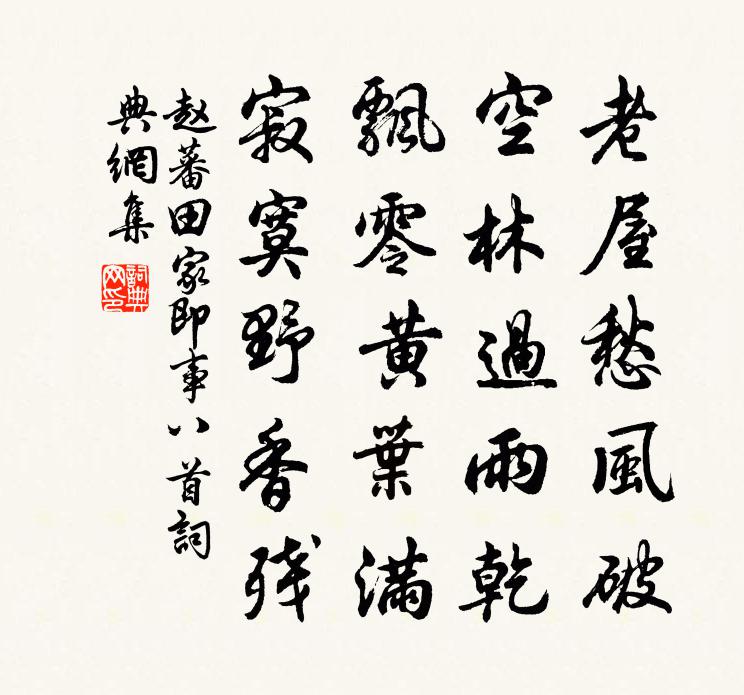 老屋愁風破
空林過雨乾
飄零黄葉滿
寂寞野香残
赵蕃田家即事八首詞
典網集
詞典网印